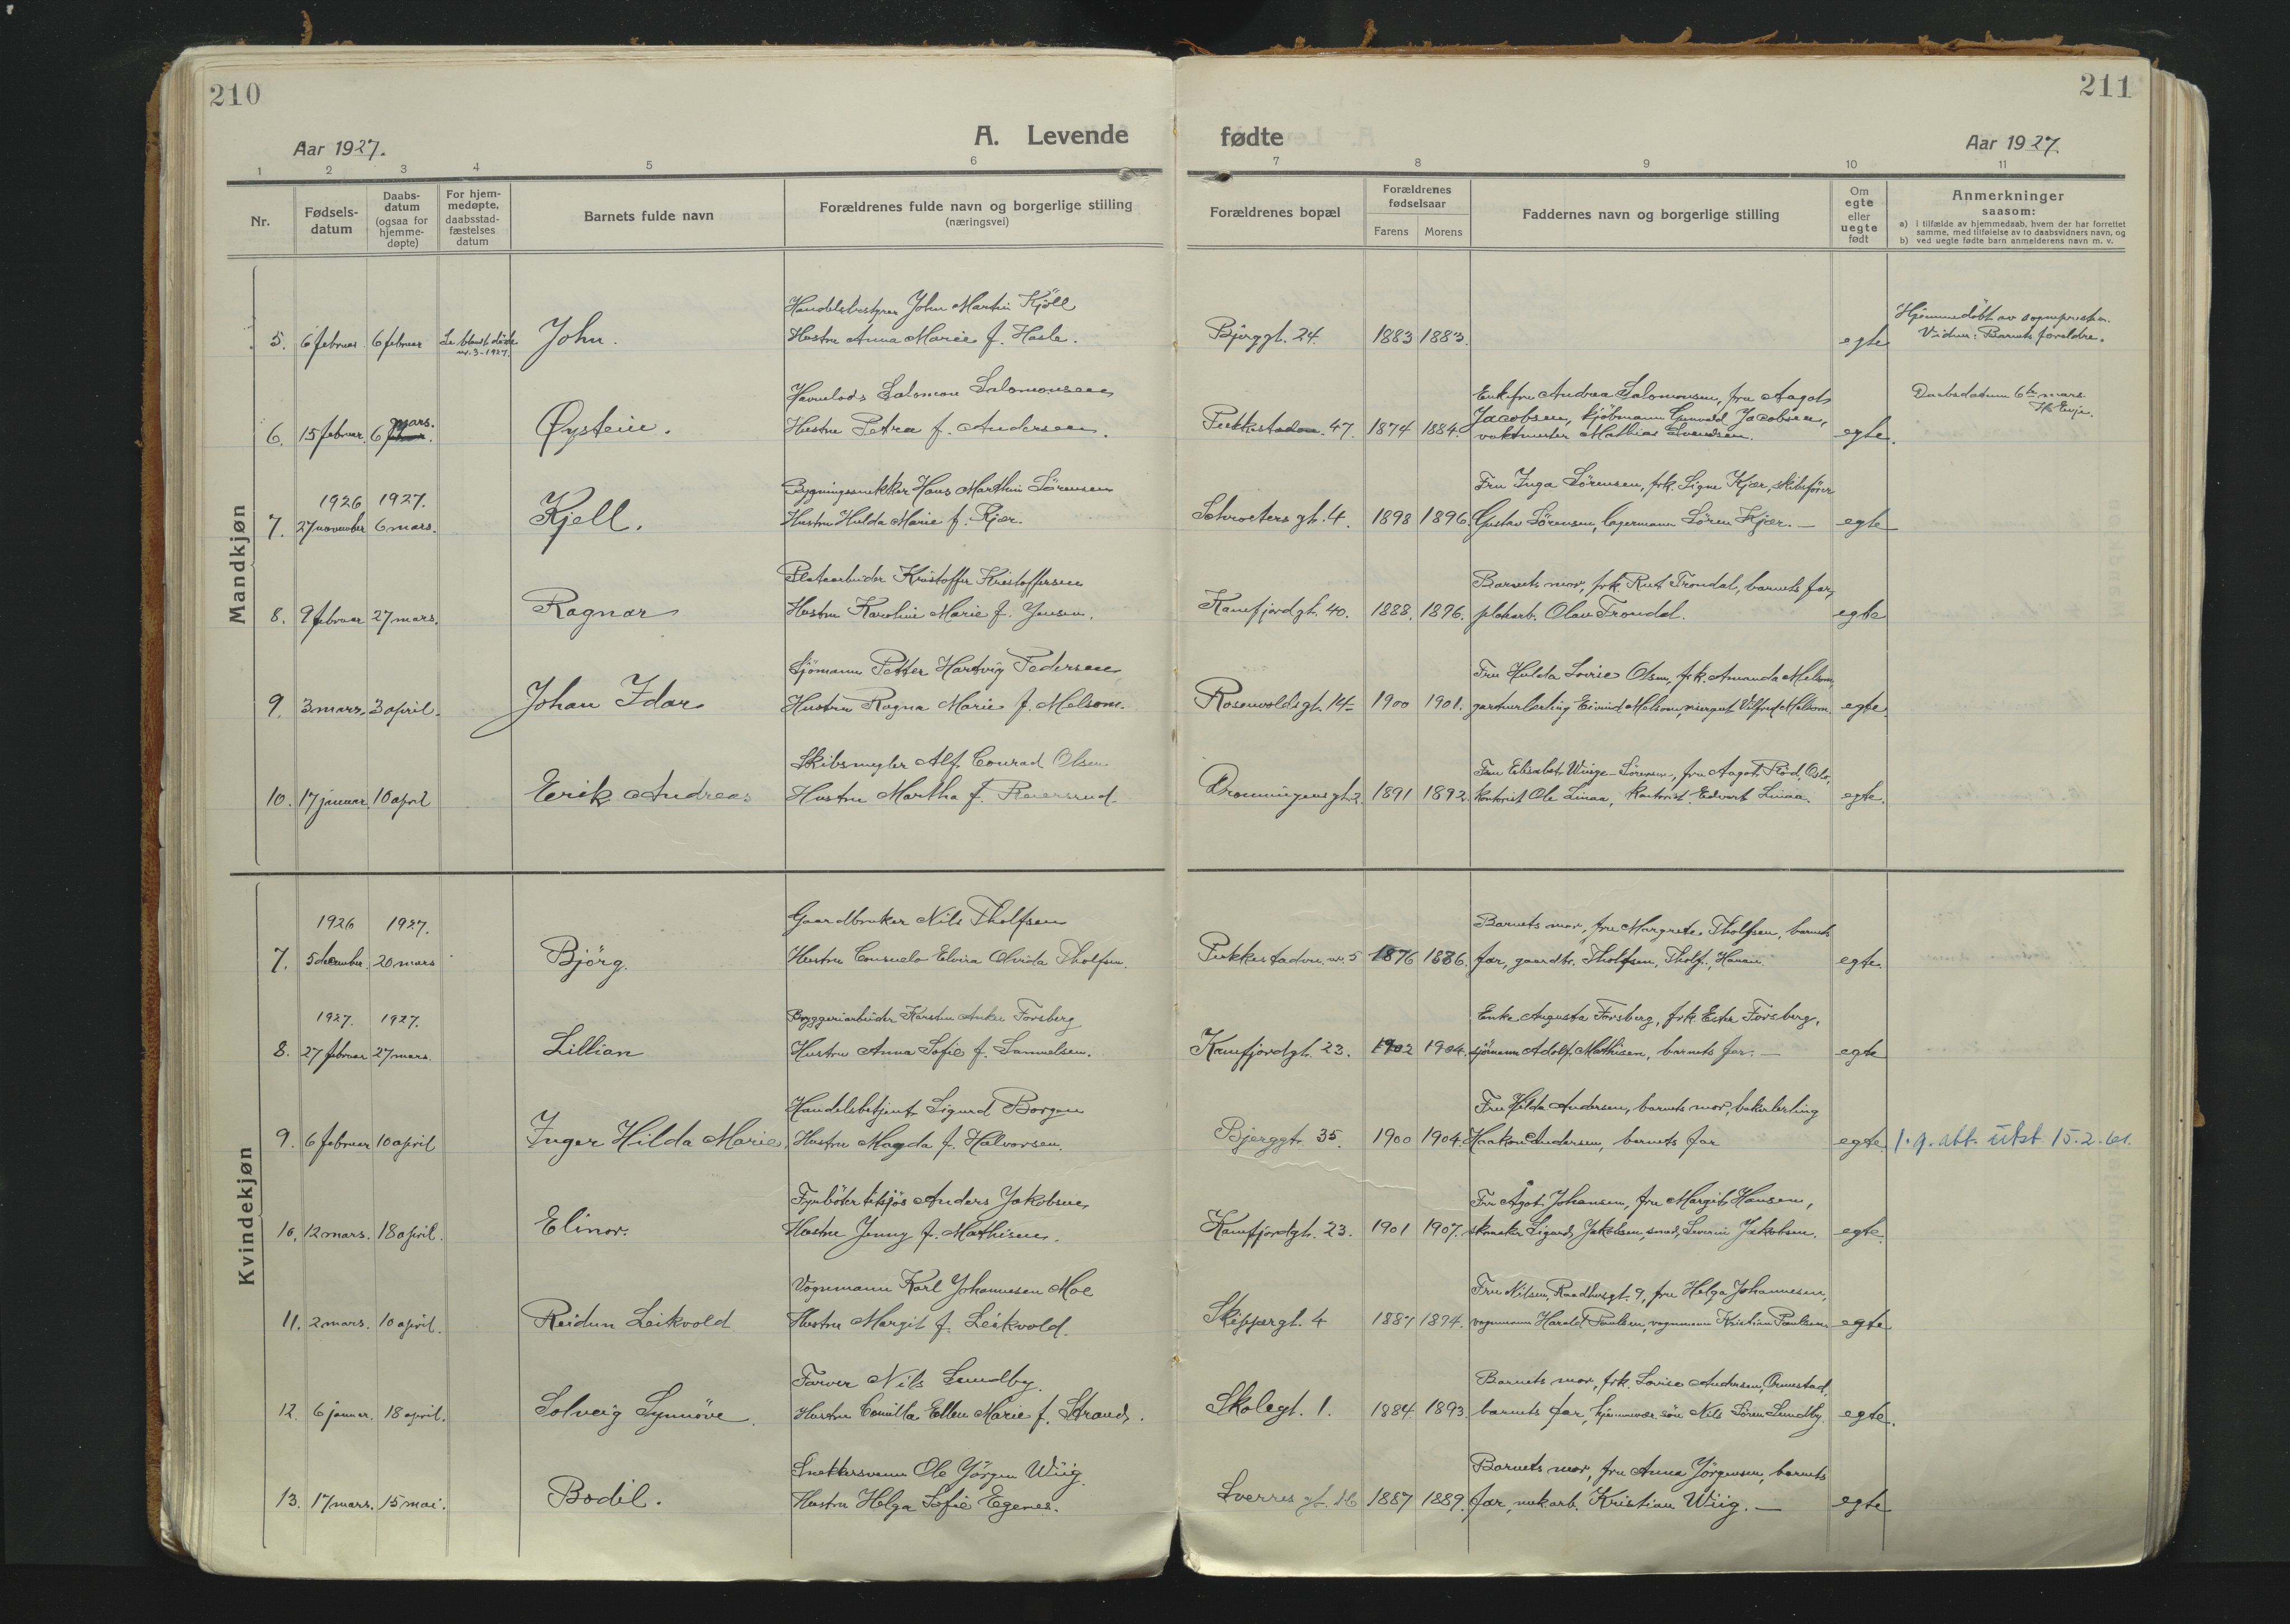 210
211
A. Levende
fødte
Aar 1927.
Aar 1927.
1 2 3 4 5 6 7 8 9 10 11
Nr.
Fødsels-
datum
Daabs-
datum
(ogsaa for
hjemme-
døpte)
For hjem-
medøpte,
daabsstad-
fæstelses
datum
Barnets fulde navn
Forældrenes fulde navn og borgerlige stilling
(næringsvei)
Forældrenes bopæl
Forældrenes
fødselsaar
Farens Morens
Faddernes navn og borgerlige stilling
Om
egte
eller
uegte
født
Anmerkninger
saasom:
a) i tilfælde av hjemmedaab, hvem der har forrettet
samme, med tilføielse av to daabsvidners navn, og
b) ved uegte fødte barn anmelderens navn m. v.
Mandkjøn
5. 6 februar 6 februar
Se blandt døde
nr. 3-1927.
John.
Handelsbestyrer John Martin Kjöll
Hustru Anna Marie f. Hasle.
Bjerggt. 24. 1883 1883. egte
Hjemmedöbt av sognepresten.
Vidner: Barnets foreldre.
6. 15 februar. 6 mars.
Øystein.
Havnelods Salomon Salomonsen
Hustru Petra f. Andersen.
Pukkestadvn. 47. 1874 1884.
Enkefru Andrea Salomonsen, fru Aagot
Jacobsen, kjöbmann Gunvald Jacobsen,
vaktmester Mathias Svendsen.
egte.
Daabsdatum 6te mars.
7. 1926 1927.
27 november 6 mars.
Kjell.
Bygningssnekker Hans Marthin Sörensen
Hustru Hulda Marie f. Kjær.
Schroeters gt. 4. 1898 1896.
Fru Inga Sörensen, frk. Signe Kjær, skibsförer
Gustav Sörensen, lagermann Sören Kjær. —
egte
8. 9 februar 27 mars.
Ragnar
Platearbeider Kristoffer Kristoffersen
Hustru Karoline Marie f. Jensen.
Kamfjordgt. 40. 1888. 1896.
Barnets mor, frk. Rut Trondal, barnets far,
platearb. Olav Trondal.
egte
9. 3 mars. 3 april.
Johan Idar
Sjömann Petter Hartvig Pedersen
Hustru Ragna Marie f. Melsom.
Rosenvoldsgt. 14 1900 1901.
Fru Hulda Lovise Olsen, frk. Amanda Melsom,
gartnerlerling Eivind Melsom, visergut Vilfred Melsom.
egte.
10. 17 januar 10 april
Erik Andreas
Skibsmegler Alf Conrad Olsen
Hustru Martha f. Reiersrud.
Dronningensgt. 2. 1891 1892.
Fru Elisabet Winge-Sörensen, fru Aagot Röd, Oslo,
kontorist Ole Linaa, kontorist Edvart Linaa.
egte.
Kvindekjøn
7. 1926 1927.
5 december. 20 mars
Björg.
Gaardbruker Nils Tholfsen
Hustru Consuelo Elvira Olvida Tholfsen.
Pukkestadvn. nr. 5 1876 1886.
Barnets mor, fru Margrete Tholfsen, barnets
far, gaardbr. Tholfsen, Tholf.,
egte.
8. 1927. 1927.
27 februar 27 mars.
Lillian
Bryggeriarbeider Karsten Anker Forsberg
Hustru Anna Sofie f. Samuelsen.
Kamfjordgt. 23. 1902 1904.
Enke Auguste Forsberg, frk Ester Forsberg,
sjömann Adolf Mathisen, barnets far. —
egte
9. 6 februar 10 april
Inger Hilda Marie,
Handelsbetjent Sigurd Borgen
Hustru Magda f. Halvorsen.
Bjerggt. 35. 1900 1904.
Fru Hilda Andersen, barnets mor, bakerlerling
Haakon Andersen, barnets far
egte.
1.g. att. utst 15.2.61.
10. 12 mars. 18 april.
Elinor.
Fyrböter tilsjös Anders Jakobsen
Hustru Jenny f. Mathisen.
Kamfjordgt. 23. 1901 1907.
Fru Ågot Johansen, fru Margit Hansen,
skomaker Sigurd Jakobsen, smed, Severin Jakobsen.
egte.
11. 2 mars. 10 april.
Reidun Leikvold
Vognmann Karl Johannesen Moe
Hustru Margit f. Leikvold.
Skippergt. 4 1887 1894.
Fru Nilsen, Raadhusgt. 9, fru Helga Johannesen,
vognmann Harald Paulsen, vognmann Kristian Paulsen.
egte
12. 6 januar. 18 april.
Solveig Synnöve.
Farver Nils Lundby.
Hustru Camilla Ellen Marie f. Strand.
Skolegt. 1. 1884 1893
Barnets mor, frk. Lovise Andersen, Ormestad,
barnets far, hjemmevær. sön Nils Sören Lundby.
egte.
13. 17 mars. 15 mai.
Bodil.
Snekkersvenn Ole Jörgen Wiig.
Hustru Helga Sofie Egenes.
Sverres gt. 16 1887 1889.
Barnets mor, fru Anna Jörgensen, barnets
far, Kristian Wiig. —
egte